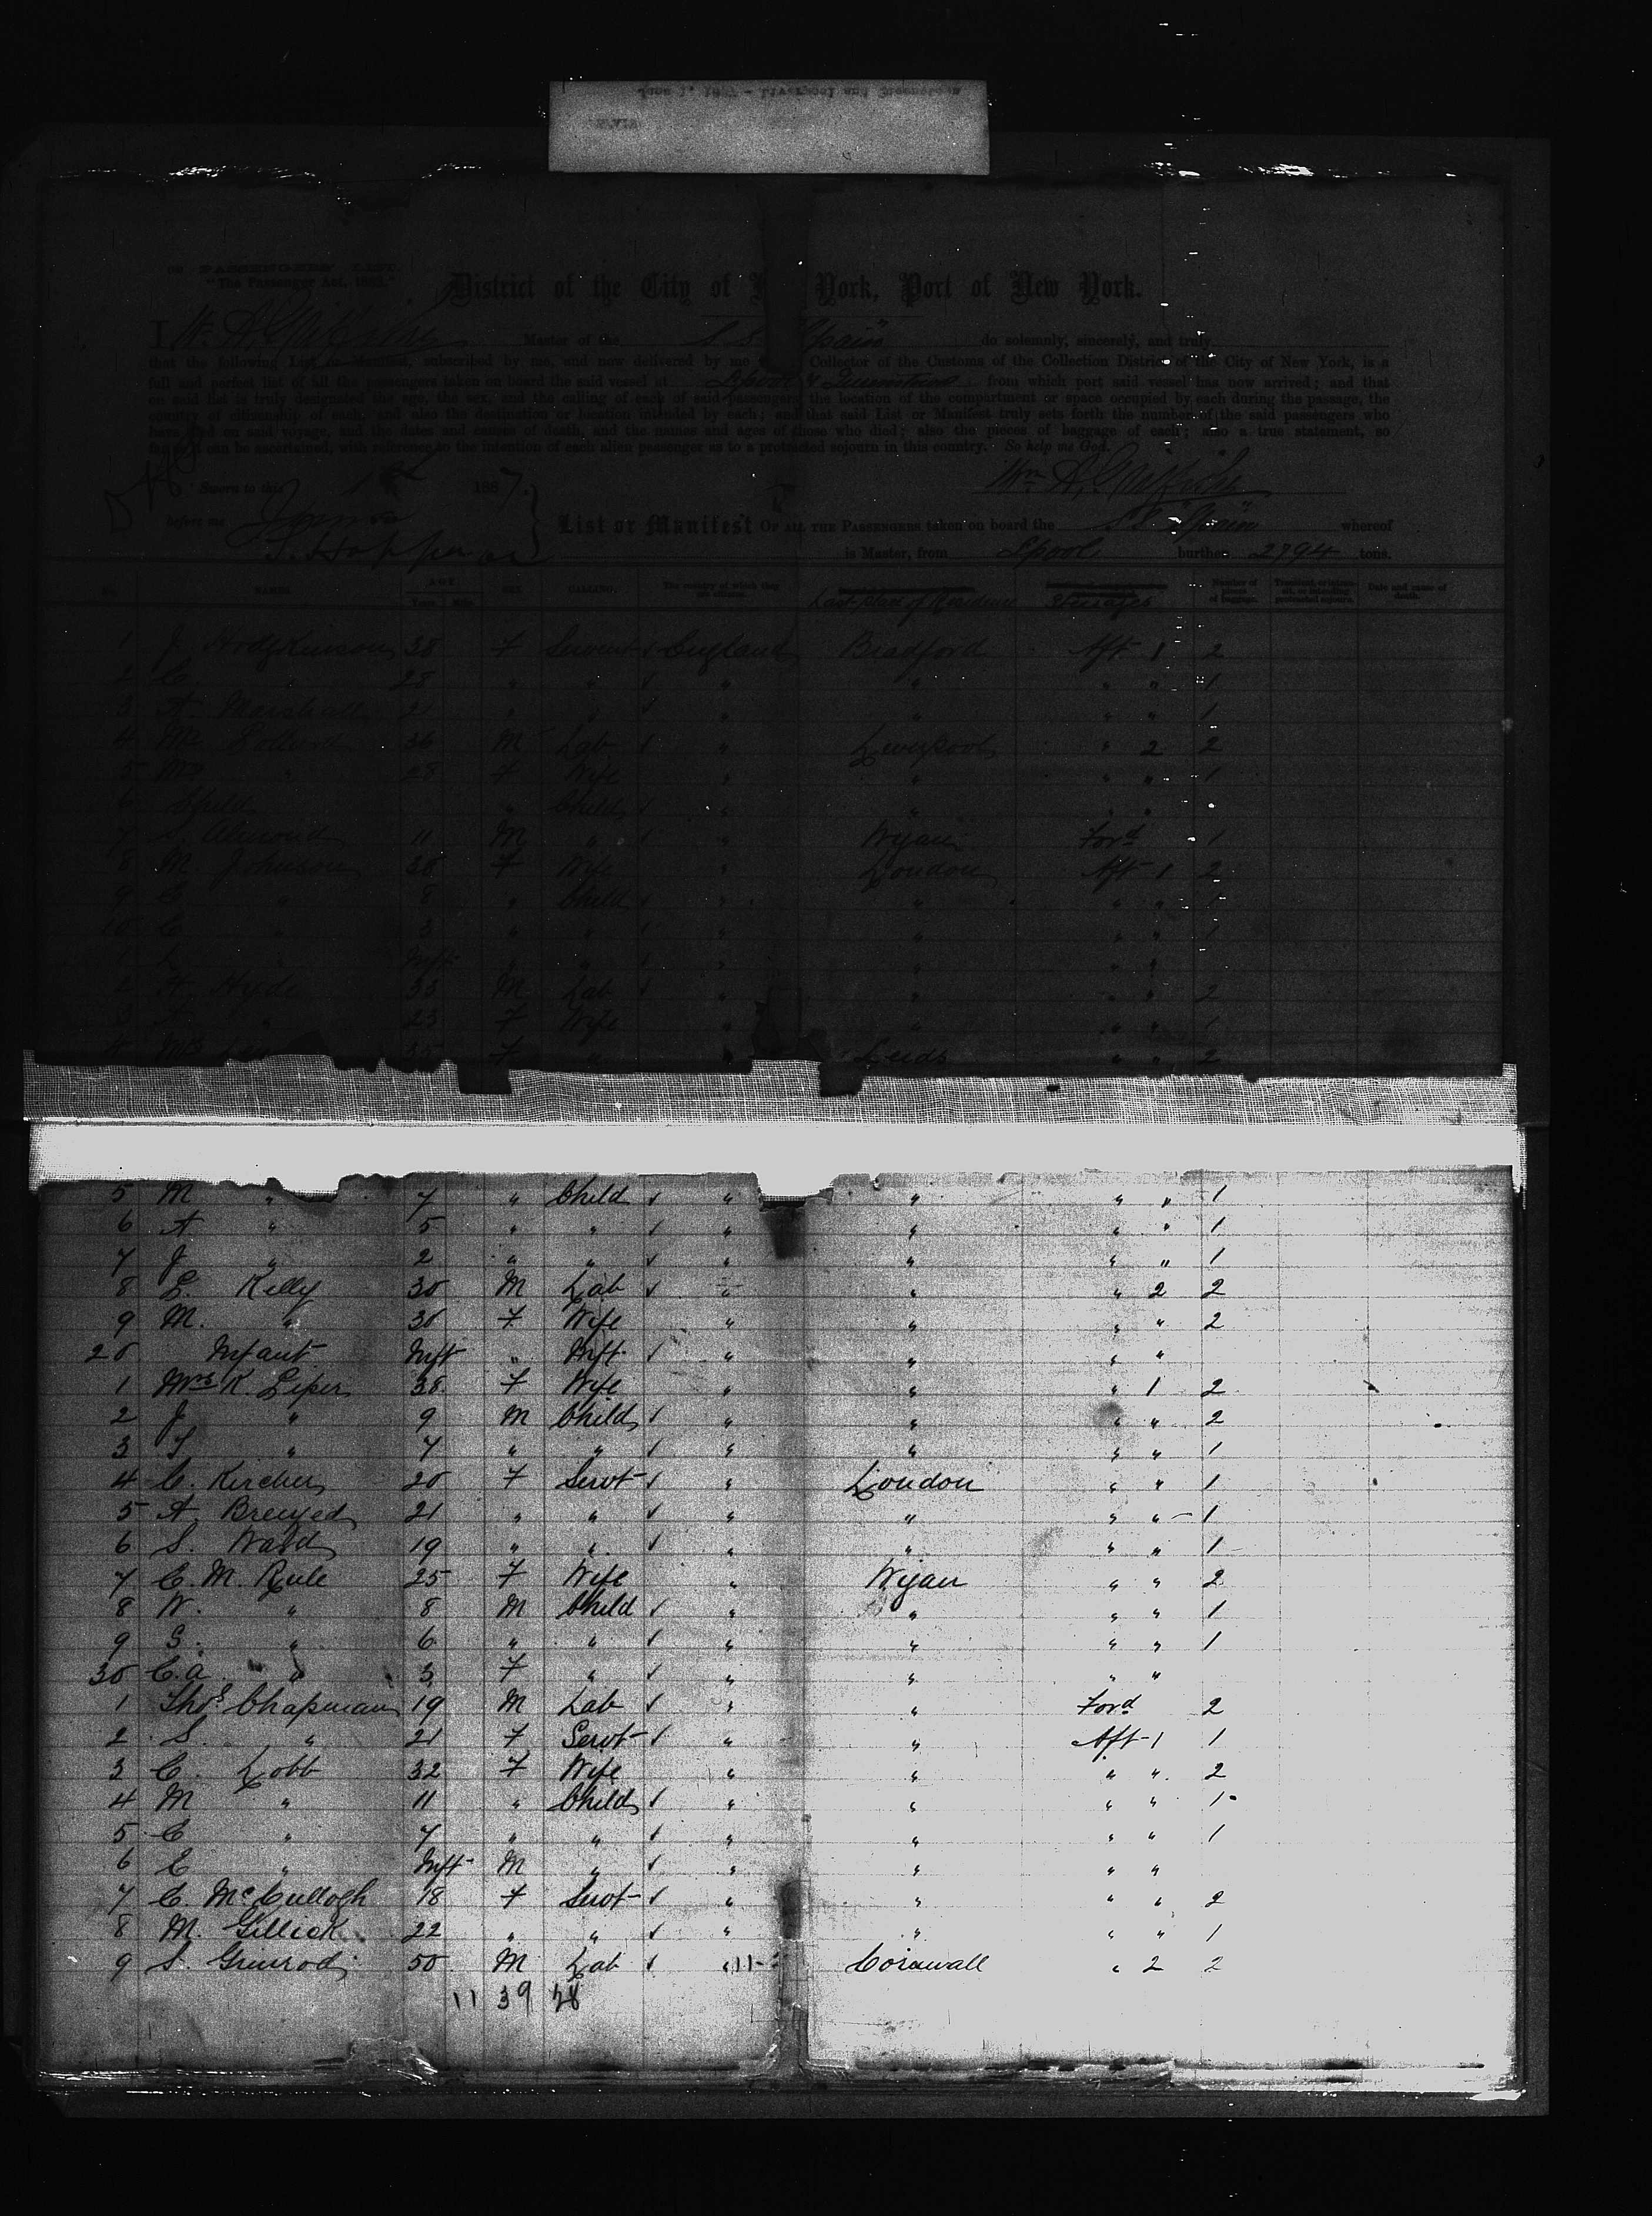 June 1, 1887 - Liverpool and Queenstown
OR PASSENGERS' LIST.
"The Passenger Act, 1882."
District of the City of York, Port of New York.
I Master of the S.S. Spain do solemnly, sincerely, and truly
that the following List or Manifest, subscribed by me, and now delivered by me Collector of the Customs of the Collection District of the City of New York, is a
full and perfect list of all the passengers taken on board the said vessel at Lpool & Queenstown from which port said vessel has now arrived; and that
on said list is truly designated the age, the sex, and the calling of each of said passengers, the location of the compartment or space occupied by each during the passage, the
country of citizenship of each, and also the destination or location intended by each; and that said List or Manifest truly sets forth the number of the said passengers who
have died on said voyage, and the dates and causes of death, and the names and ages of those who died; also the pieces of baggage of each; also a true statement, so
far as it can be ascertained, with reference to the intention of each alien passenger as to a protracted sojourn in this country. So help me God.
Sworn to this 1st 1887.
before me June
List or Manifest OF ALL THE PASSENGERS taken on board the S.S. Spain whereof
is Master, from Lpool burthen 2794 tons.
No. NAMES. AGE Years Mths SEX CALLING. The country of which they are citizens. Last place of Residence Steerage Number of pieces of baggage. Date and cause of death.
1 J Hodgkinson 38 F Servant ✓ England Bradford Aft 1 2
2 C " 28 " " ✓ " " " " 1
3 A Marshall 21 " " ✓ " " " " 1
4 36 M Lab ✓ " Liverpool " 2 2
5 Mrs " 28 F Wife " " " " 1
6 Child " Child ✓ " " " "
7 S. Almond 11 M " ✓ " Wigan Ford 1
8 M. Johnson 38 F Wife " London Aft 1 2
9 C " 8 " Child ✓ " " " " 1
10 C " 3 " " ✓ " " " " 1
1 " Inft " " ✓ " " " "
2 A. Hyde 33 M Lab ✓ " " " " 2
3 " 23 F Wife " " " " 1
4 Mrs 35 F " " Leeds " " 2
5 M " 7 " Child ✓ " " " " 1
6 A " 5 " " ✓ " " " " 1
7 J " 2 " " ✓ " " " " 1
8 L. Kelly 30 M Lab ✓ " " " 2 2
9 M. " 30 F Wife " " " " 2
20 Infant Inft " Inft ✓ " " " "
1 Mrs K. Liper 38 F Wife " " " 1 2
2 J " 9 M Child ✓ " " " " 2
3 T " 7 " " ✓ " " " " 1
4 C. Kircher 20 F Servt ✓ " London " " 1
5 A. Brewed 21 " " ✓ " " " " 1
6 S. Wadd 19 " " ✓ " " " " 1
7 C. M. Rule 25 F Wife " Wigan " " 2
8 W. " 8 M Child ✓ " " " " 1
9 S. " 6 " " ✓ " " " " 1
30 C.a " 3 F " ✓ " " " "
1 Thos Chapman 19 M Lab ✓ " " Ford 2
2 S. " 21 F Servt ✓ " " Aft 1 1
3 C. Lobb 32 F Wife " " " " 2
4 M " 11 " Child ✓ " " " " 1
5 C " 7 " " ✓ " " " " 1
6 C " Inft M " ✓ " " " "
7 C. McCullogh 18 F Servt ✓ " " " " 2
8 M. Gillick 22 " " ✓ " " " " 1
9 S. Grimrod 50 M Lab ✓ " Cornwall " 2 2
11 39 28